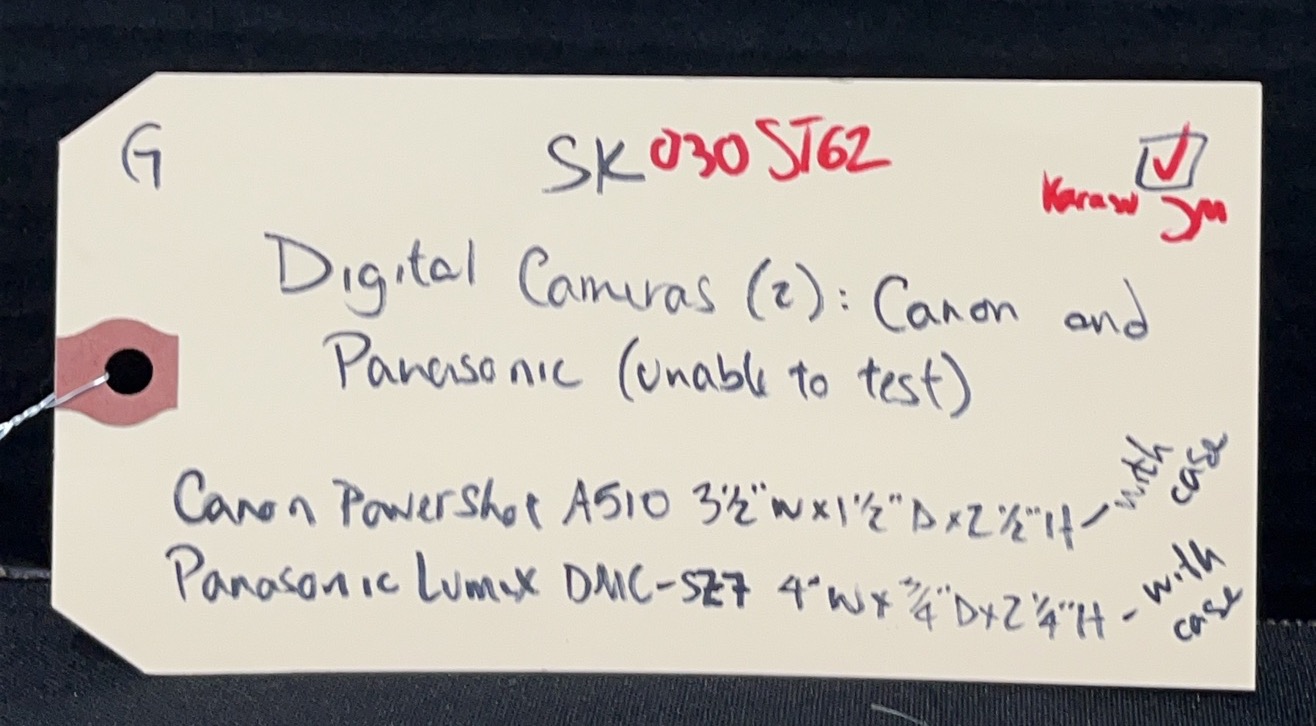 G
SK030ST62
Digital Cameras (2): Canon and
Panasonic (unable to test)
Canon PowerShot A510 3 1/2" W x 1 1/2" D x 2 1/2" H - with case
Panasonic Lumix DMC-SZ7 4" W x 3/4" D x 2 1/4" H - with case